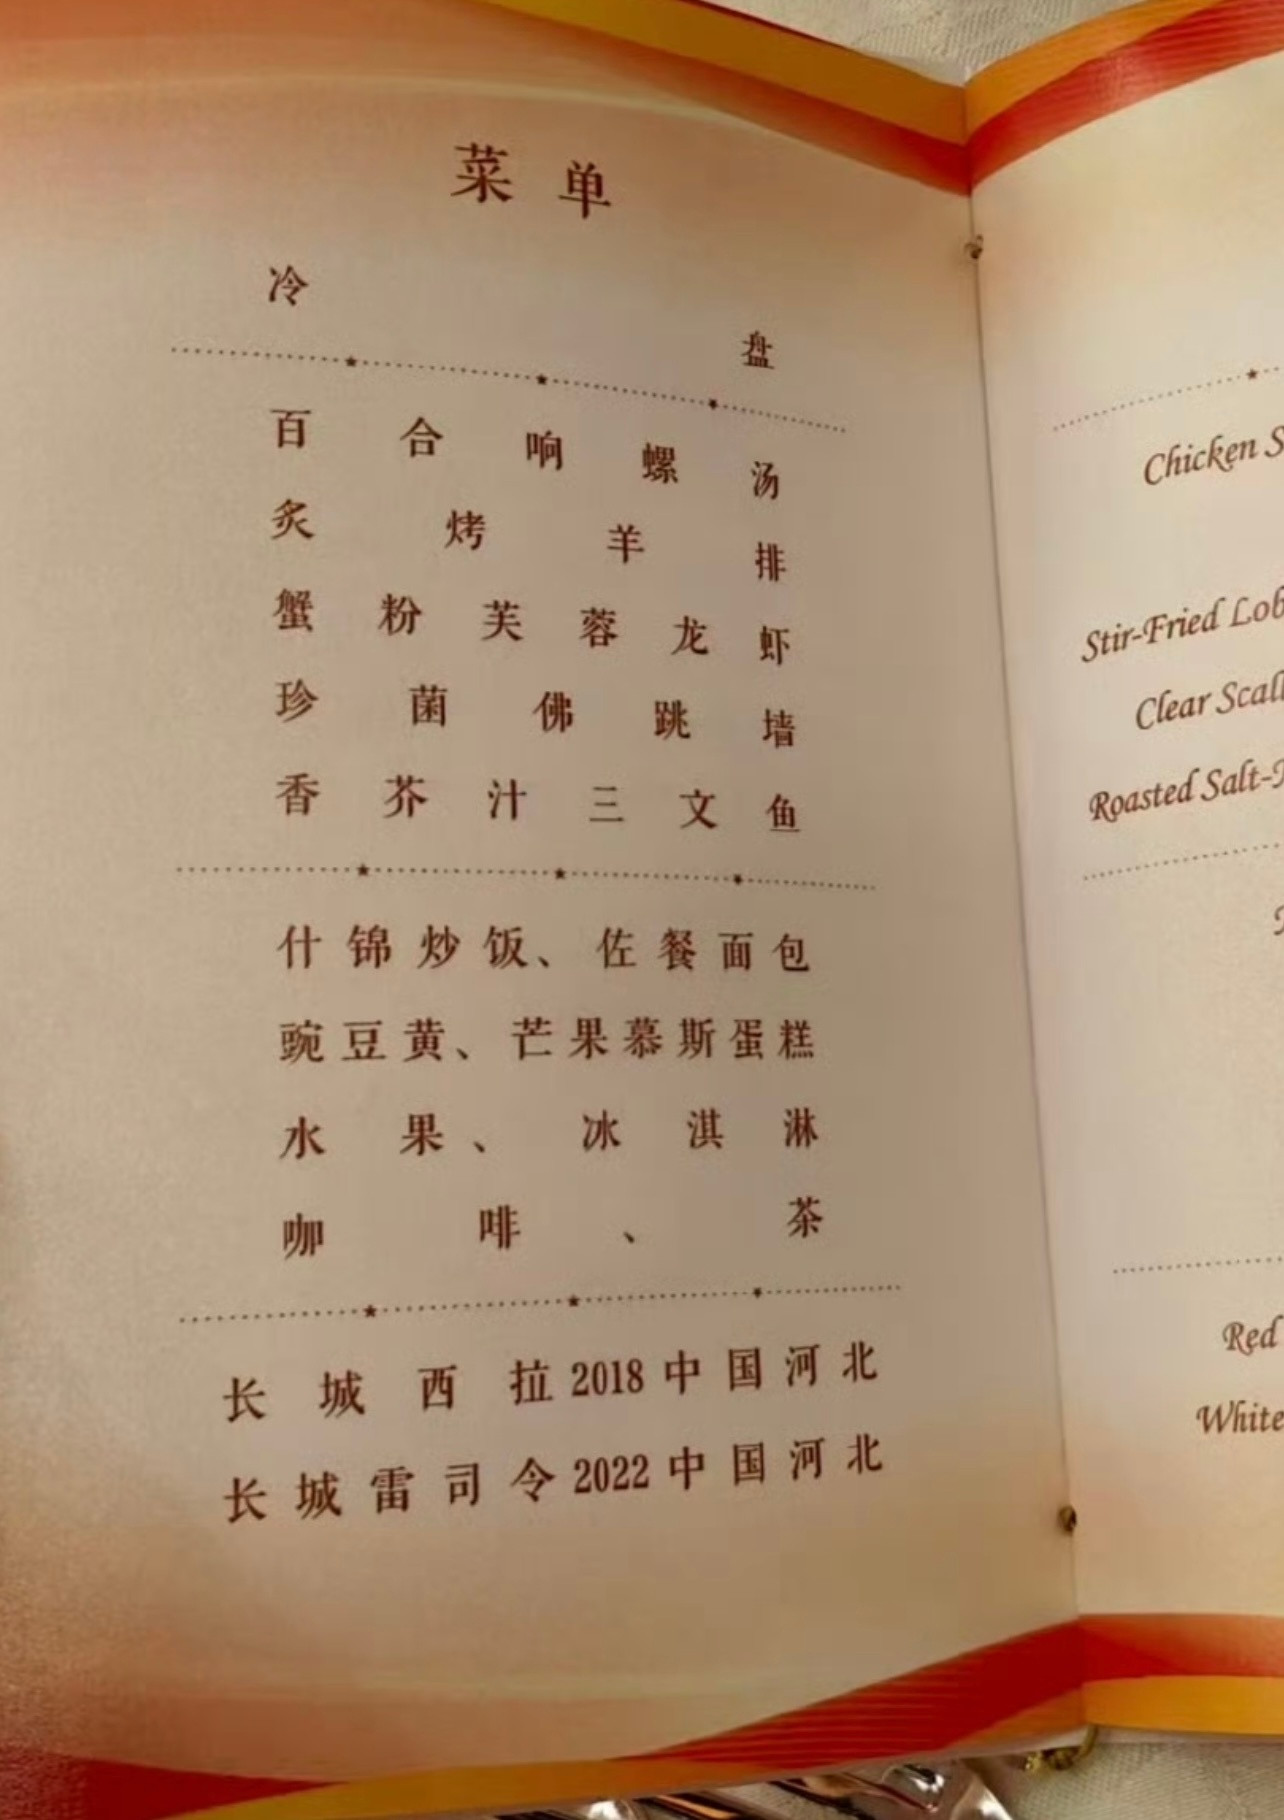 菜单
冷盘
百合响螺汤
炙烤羊排
蟹粉芙蓉龙虾
珍菌佛跳墙
香芥汁三文鱼
什锦炒饭、佐餐面包
豌豆黄、芒果慕斯蛋糕
水果、冰淇淋
咖啡、茶
长城西拉2018中国河北
长城雷司令2022中国河北
Chicken
Stir-Fried
Clear
Roasted
Red
White